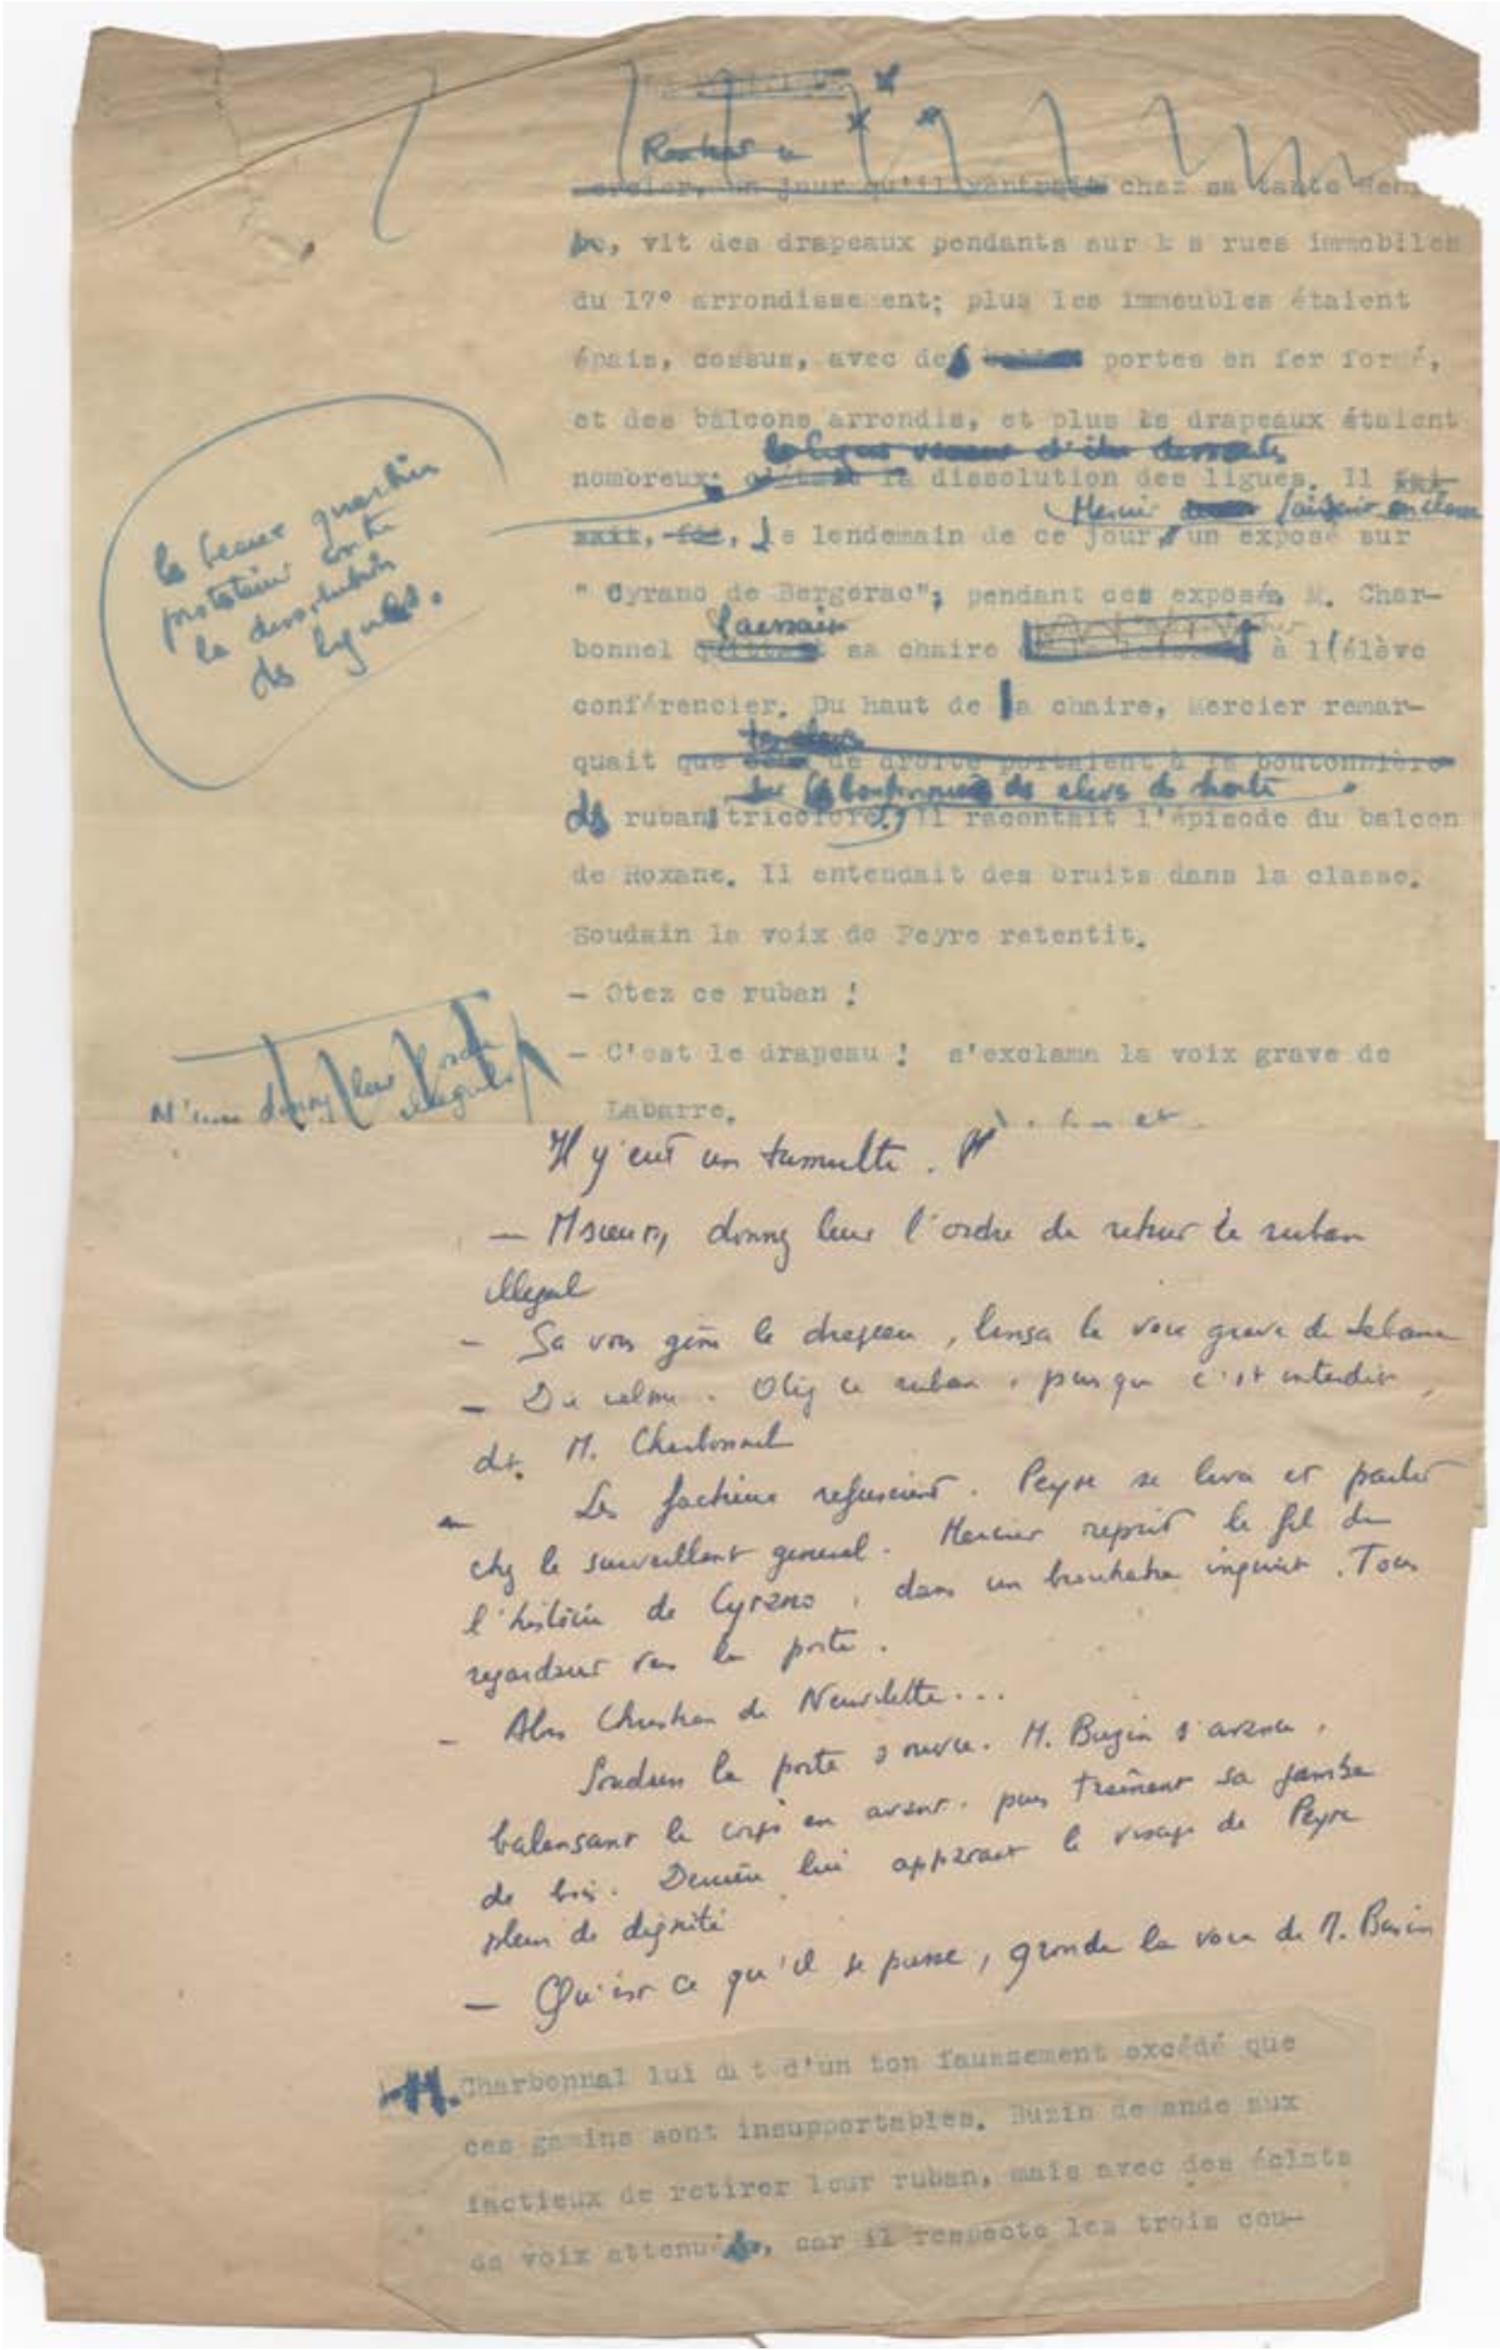 Rentrer
Mercier, un jour qu'il rentrait chez sa tante
vit des drapeaux pendants sur les rues immobiles
du 17° arrondissement; plus les immeubles étaient
épais, cossus, avec des portes en fer forgé,
et des balcons arrondis, et plus les drapeaux étaient
les ligues venaient d'être dissoutes
nombreux: c'était la dissolution des ligues. Il
Mercier faisait en classe
le lendemain de ce jour, un exposé sur
les beaux quartiers
protestaient contre
la dissolution
des ligues.
" Cyrano de Bergerac"; pendant ces exposés, M. Char-
laissait
bonnel quittait sa chaire à l'élève
conférencier. Du haut de la chaire, Mercier remar-
quait que ceux de droite portaient à la boutonnière
sur les boutonnières des élèves de droite
des ruban tricolore. Il racontait l'épisode du balcon
de Roxane. Il entendait des bruits dans la classe.
Soudain la voix de Peyre retentit.
- Otez ce ruban !
- C'est le drapeau ! s'exclama la voix grave de
Labarre.
M'sieur donnez leur l'ordre
illégal
Il y eut un tumulte.
- Msieurs, donnez leur l'ordre de retirer le ruban
illégal
- Sa vous gêne le drapeau, lança la voix grave de Labarre
- Du calme. Otez ce ruban, puisque c'est interdit,
dit M. Charbonnel
Les factieux refusaient. Peyre se leva et partit
chez le surveillant general. Mercier reprit le fil de
l'histoire de Cyrano, dans un brouhaha inquiet. Tous
regardaient vers la porte.
- Alors Christian de Neuvilette...
Soudain la porte s'ouvre. M. Buzin s'avance,
balançant le corps en avant, puis traînant sa jambe
de bois. Derrière lui apparait le visage de Peyre
plein de dignité
- Qu'est ce qu'il se passe, gronda la voix de M. Buzin
M. Charbonnal lui dit d'un ton faussement excédé que
ces gamins sont insupportables. Buzin demande aux
factieux de retirer leur ruban, mais avec des éclats
de voix attenués, car il respecte les trois cou-